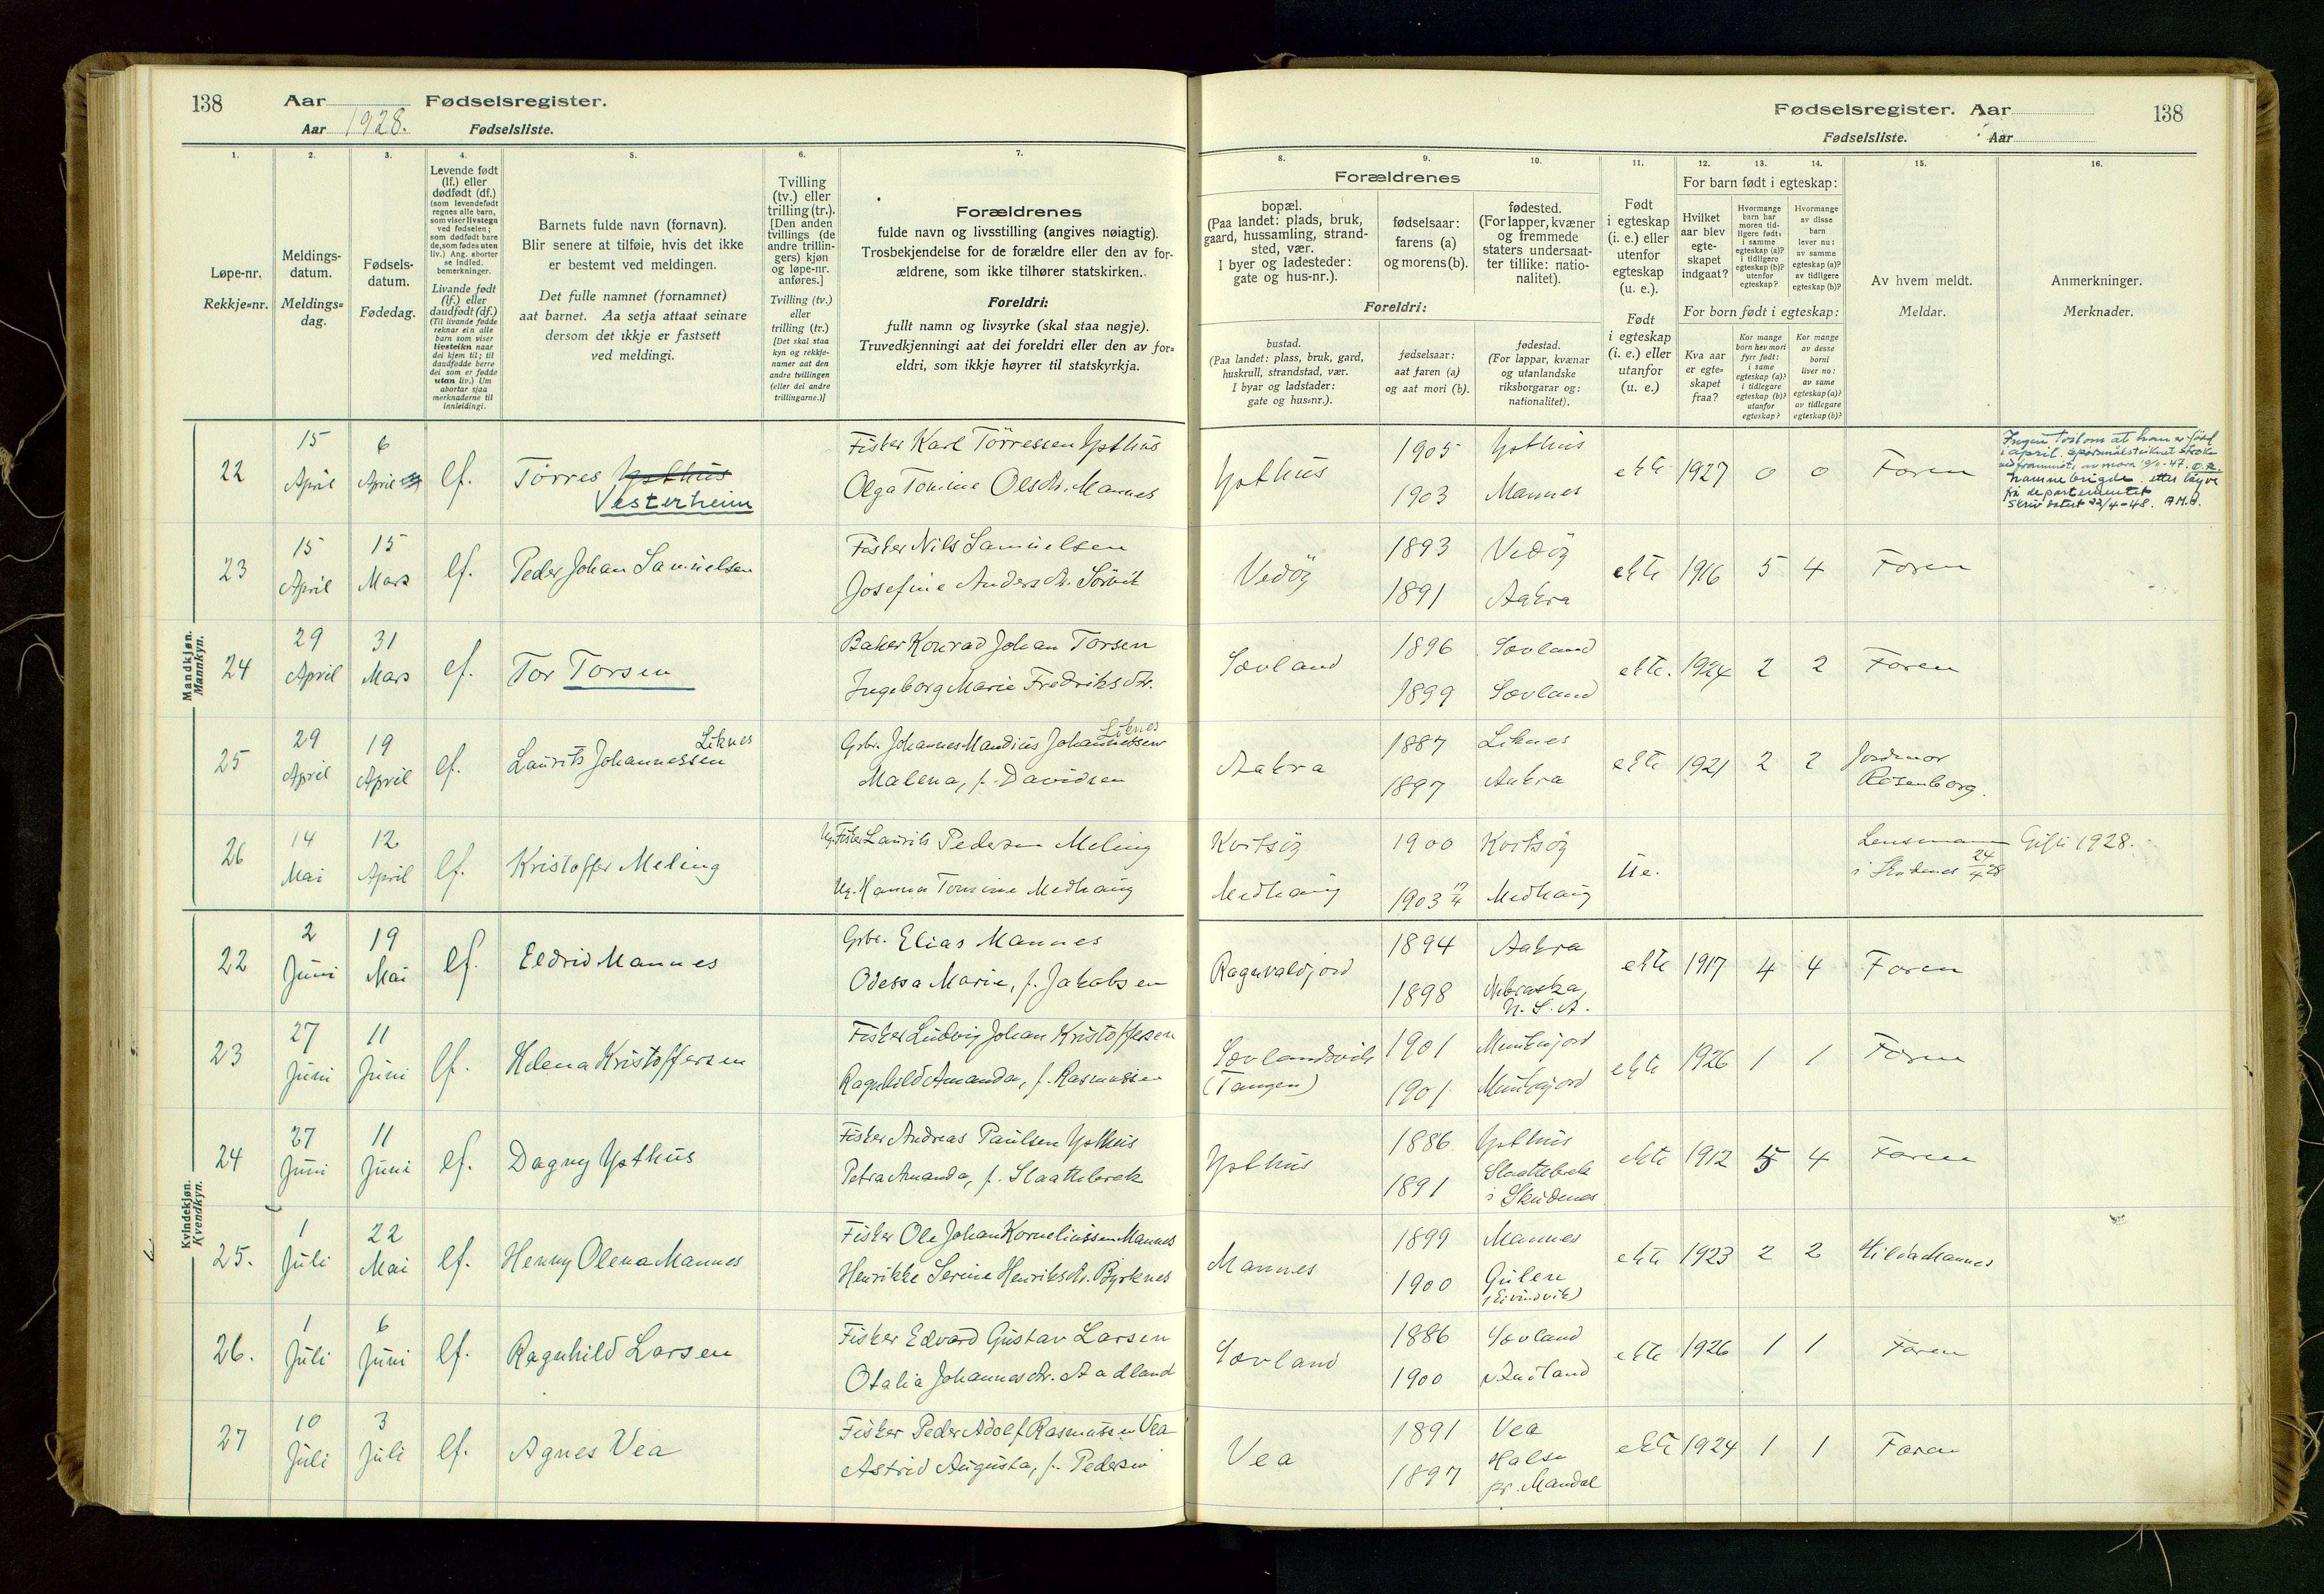 138 Aar Fødselsregister.
Aar 1928. Fødselsliste.
Fødselsregister. Aar 138
Fødselsliste. Aar
1. 2. 3. 4. 5. 6. 7.
Løpe-nr.
Rekkje=nr.
Meldings-
datum.
Meldings=
dag.
Fødsels-
datum.
Fødedag.
Levende født
(lf.) eller
dødfødt (df.)
(som levendefødt
regnes alle barn,
som viser livstegn
ved fødselen;
som dødfødt bare
de, som fødes uten
liv.) Ang. aborter
se indled.
bemerkninger.
Livande født
(lf.) eller
daudfødt (df.)
(Til livande fødde
reknar ein alle
barn som viser
livsteikn naar
dei kjem til; til
daudfødde berre
dei som er fødde
utan liv.) Um
abortar sjaa
merknaderne til
innleidingi.
Barnets fulde navn (fornavn).
Blir senere at tilføie, hvis det ikke
er bestemt ved meldingen.
Det fulle namnet (fornamnet)
aat barnet. Aa setja attaat seinare
dersom det ikkje er fastsett
ved meldingi.
Tvilling
(tv.) eller
trilling (tr.).
[Den anden
tvillings (de
andre trillin-
gers) kjøn
og løpe-nr.
anføres.]
Tvilling (tv.)
eller
trilling (tr.)
[Det skal staa
kyn og rekkje-
numer aat den
andre tvillingen
(eller dei andre
trillingarne.)]
Forældrenes
fulde navn og livsstilling (angives nøiagtig).
Trosbekjendelse for de forældre eller den av for-
ældrene, som ikke tilhører statskirken.
Foreldri:
fullt namn og livsyrke (skal staa nøgje).
Truvedkjenningi aat dei foreldri eller den av for=
eldri, som ikkje høyrer til statskyrkja.
8. 9. 10. 11. 12. 13. 14. 15. 16.
Forældrenes
bopæl.
(Paa landet: plads, bruk,
gaard, hussamling, strand-
sted, vær.
I byer og ladesteder:
gate og hus-nr.).
fødselsaar:
farens (a)
og morens (b).
fødested.
(For lapper, kvæner
og fremmede
staters undersaat-
ter tillike: natio-
nalitet).
Foreldri:
bustad.
(Paa landet: plass, bruk, gard,
huskrull, strandstad, vær.
I byar og ladstader:
gate og hus=nr.).
fødselsaar:
aat faren (a)
og aat mori (b).
fødestad.
(For lappar, kvænar
og utanlandske
riksborgarar og:
nationalitet).
Født
i egteskap
(i. e.) eller
utenfor
egteskap
(u. e.).
Født
i egteskap
(i. e.) eller
utanfor
(u. e.)
For barn født i egteskap:
Hvilket
aar blev
egte-
skapet
indgaat?
Hvormange
barn har
moren tid-
ligere født:
i samme
egteskap (a)?
i tidligere
egteskap (b)?
utenfor
egteskap?
Hvormange
av disse
barn
lever nu:
av samme
egteskap (a)?
av tidligere
egteskap (b)?
For born født i egteskap:
Kva aar
er egte=
skapet
fraa?
Kor mange
born hev mori
fyrr født:
i same
egteskap (a)?
i tidlegare
egteskap (b)?
utanfor
egteskap?
Kor mange
av desse
borni
liver no:
av same
egteskap (a)?
av tidlegare
egteskap (b)?
Av hvem meldt.
Meldar.
Anmerkninger.
Merknader.
Mandkjøn.
Mannkyn.
22 15 April 6 April lf. Tørres Ysthus Vesterheim
Fisker Karl Tørressen Ysthus
Olga Tomine Olsdtr. Mannes
Ysthus 1905 Ysthus
1903 Mannes
ekte 1927 0 0 Faren
i april.
namnebrigde etter løyve
fra departementet
skriv datert 22/4-48.
23 15 April 15 Mars lf. Peder Johan Samuelsen
Fisker Nils Samuelsen
Josefine Andersdtr. Sørvik
Vedøy 1893 Vedøy
1891 Aakra
ekte 1916 5 4 Faren
24 29 April 31 Mars lf. Tor Torsen
Baker Konrad Johan Torsen
Ingeborg Marie Fredriksdtr.
Sævland 1896 Sævland
1899 Sævland
ekte. 1924 2 2 Faren
25 29 April 19 April lf. Laurits Johannessen Liknes
Gbr. Johannes Mandius Johannessen Liknes
Malena, f. Davidsen
Aakra 1887 Liknes
1897 Aakra
ekte 1921 2 2 Jordmor
Rosenborg.
26 14 Mai 12 April lf. Kristoffer Meling
Ug. Fisker Laurits Pedersen Meling
Ug. Hanna Tomine Medhaug
Kvitsøy 1900 Kvitsøy
Medhaug 1903 17/4 Medhaug
Ue.
Lensmann
i Skudenes 24/4 28
Gifte 1928.
Kvindekjøn.
Kvendkyn.
22 2 Juni 19 Mai lf. Eldrid Mannes
Gbr. Elias Mannes
Odessa Marie, f. Jakobsen
Ragnvaldjord 1894 Aakra
1898 Nebraska,
U. S. A.
ekte 1917 4 4 Faren
23 27 Juni 11 Juni lf. Helena Kristoffersen
Fisker Ludvig Johan Kristoffersen
Ragnhild Amanda, f. Rasmussen
Sævlandsvik
(Tangen)
1901 Munkejord
1901. Munkejord
ekte 1926 1 1 Faren
24 27 Juni 11 Juni lf. Dagny Ysthus
Fisker Andreas Paulsen Ysthus
Petra Amanda, f. Slaattebrek
Ysthus 1886 Ysthus
1891 Slaattebrek
i Skudenes
ekte 1912 5 4 Faren
25. 1 Juli 22 Mai lf. Henny Olena Mannes
Fisker Ole Johan Korneliussen Mannes
Henrikke Serine Henriksdtr. Byrknes
Mannes 1899 Mannes
1900 Gulen
(Eivindvik)
ekte 1923 2 2 Hilda Mannes
26. 1 Juli 6 Juni lf. Ragnhild Larsen
Fisker Edvard Gustav Larsen
Otalia Johannesdtr. Aadland
Sævland 1886 Sævland
1900 Aadland
ekte 1926 1 1 Faren
27 10 Juli 3 Juli lf. Agnes Vea
Fisker Peder Adolf Rasmussen Vea
Astrid Augusta, f. Pedersen
Vea 1891 Vea
1897 Halse
pr. Mandal
ekte 1924 1 1 Faren